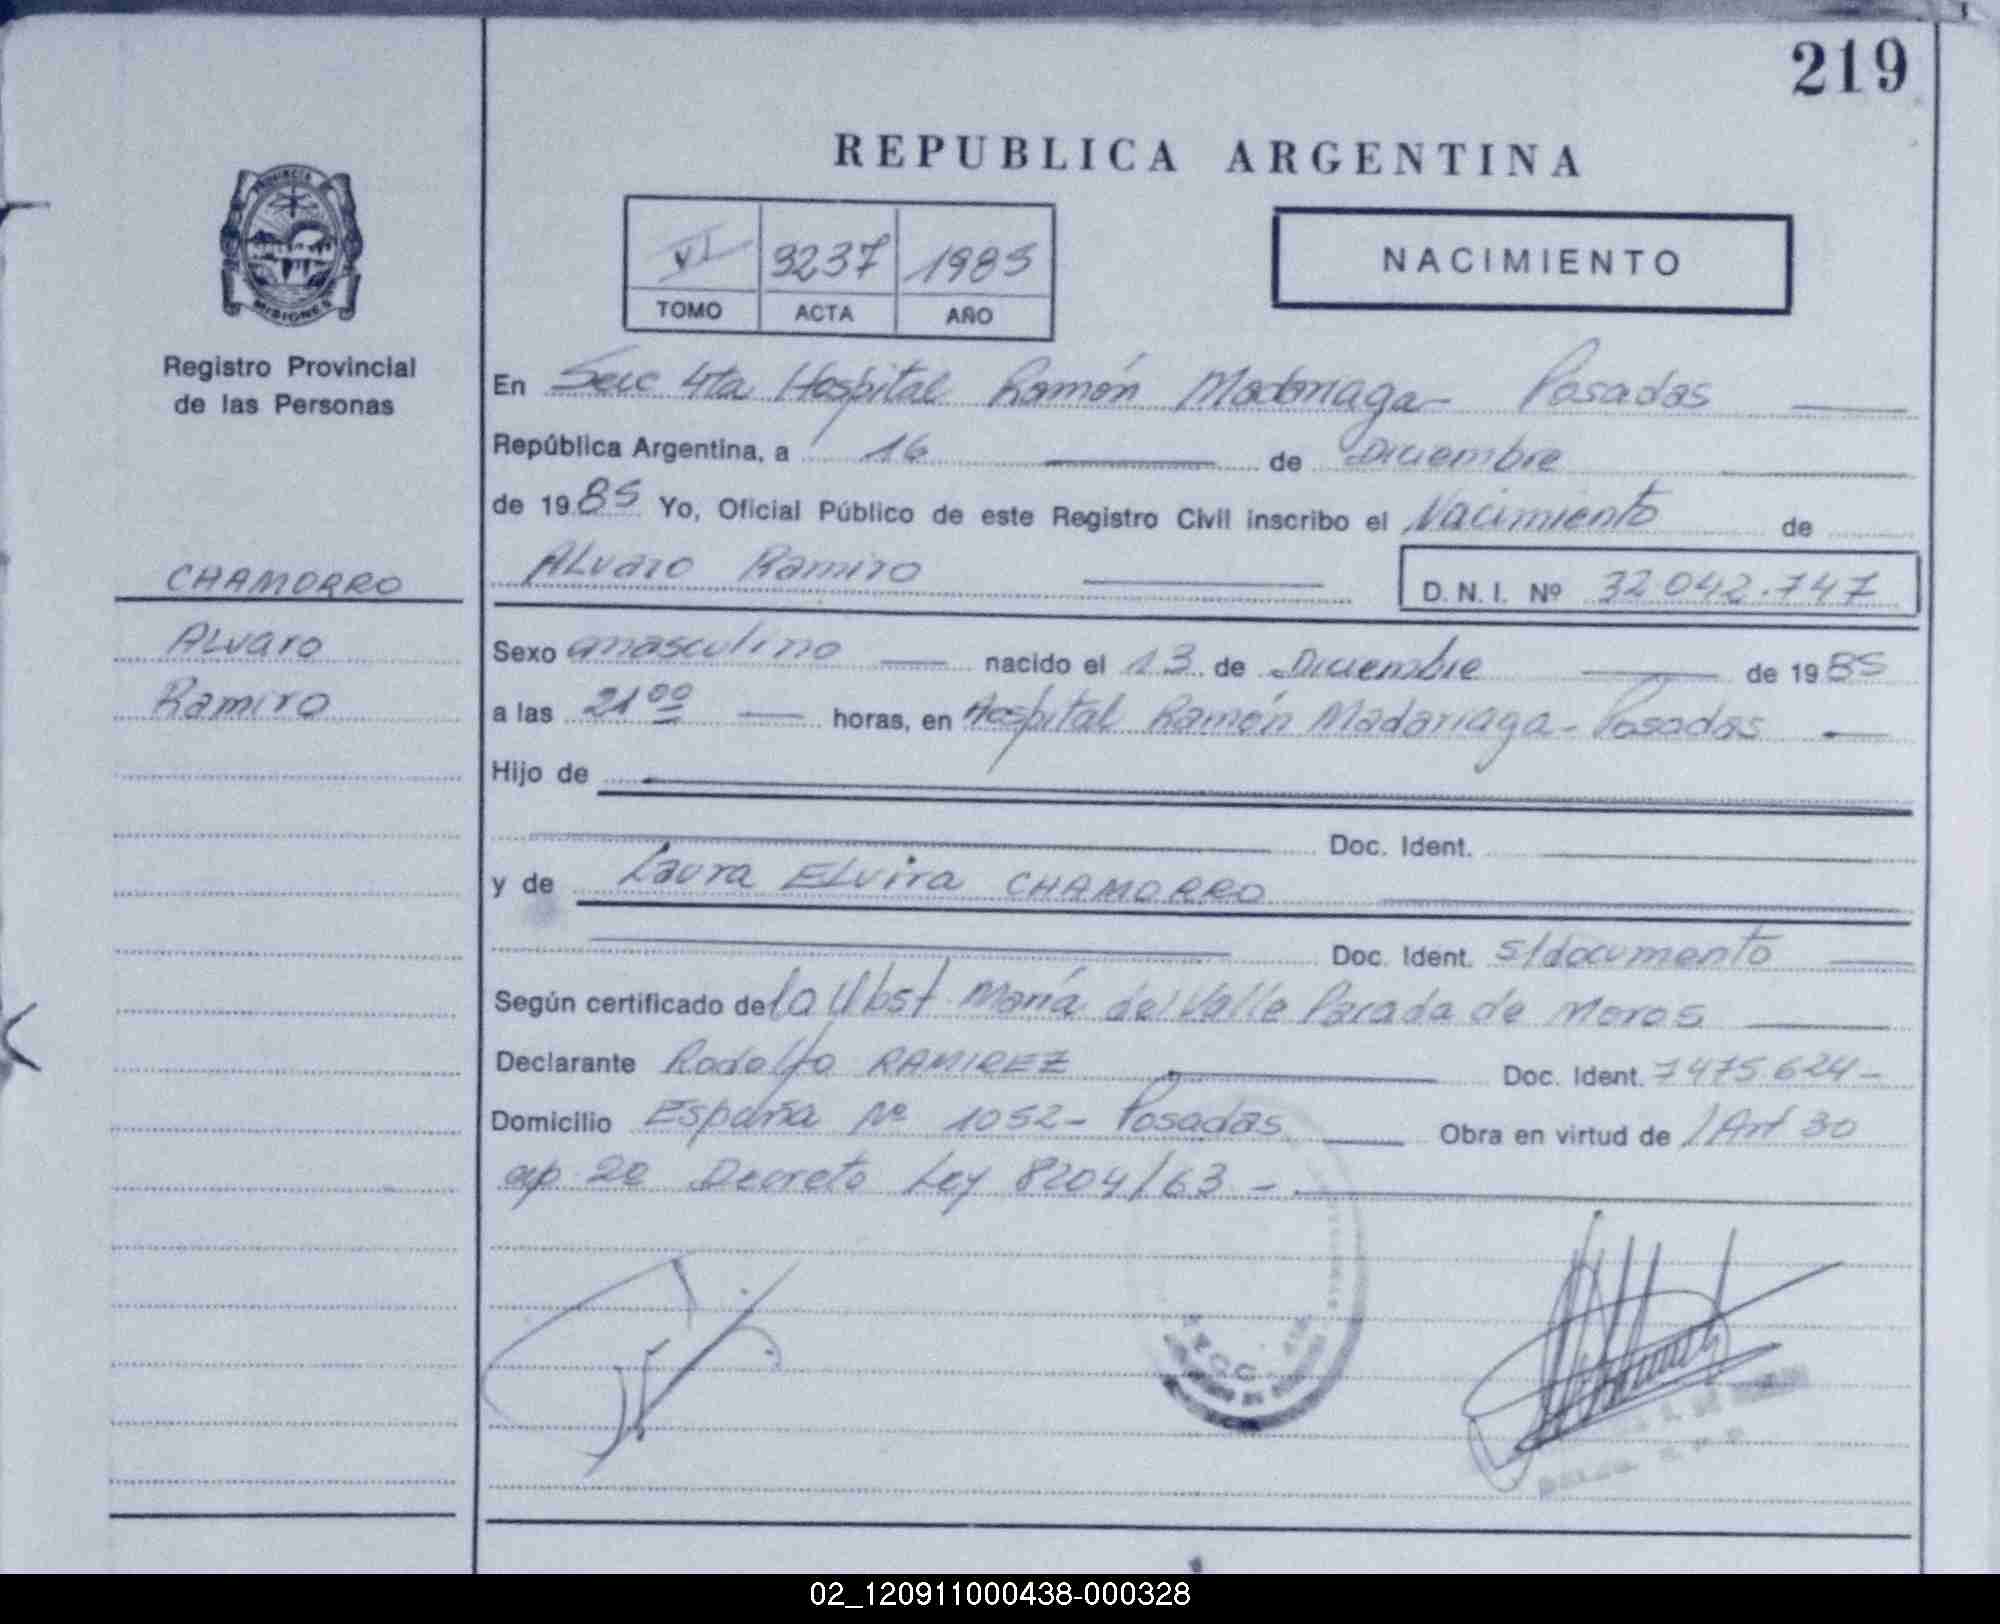 219
REPUBLICA ARGENTINA
PROVINCIA DE
MISIONES
Registro Provincial
de las Personas
VI 3237 1985
TOMO ACTA AÑO
NACIMIENTO
En Secc 4ta Hospital Ramón Madariaga - Posadas
República Argentina, a 16 de Diciembre
de 1985 Yo, Oficial Público de este Registro Civil inscribo el Nacimiento de
CHAMORRO
Alvaro Ramiro D.N.I. Nº 32 042.747
Alvaro
Ramiro
Sexo masculino nacido el 13 de Diciembre de 1985
a las 21⁰⁰ horas, en Hospital Ramón Madariaga - Posadas
Hijo de
Doc. Ident.
y de Laura Elvira CHAMORRO
Doc. Ident. s/documento
Según certificado de la Obst María del Valle Parada de Moros
Declarante Rodolfo RAMIREZ Doc. Ident. 7475.624-
Domicilio España Nº 1052 - Posadas Obra en virtud de /Art 30
ap 2º Decreto Ley 8204/63 -
02_120911000438-000328